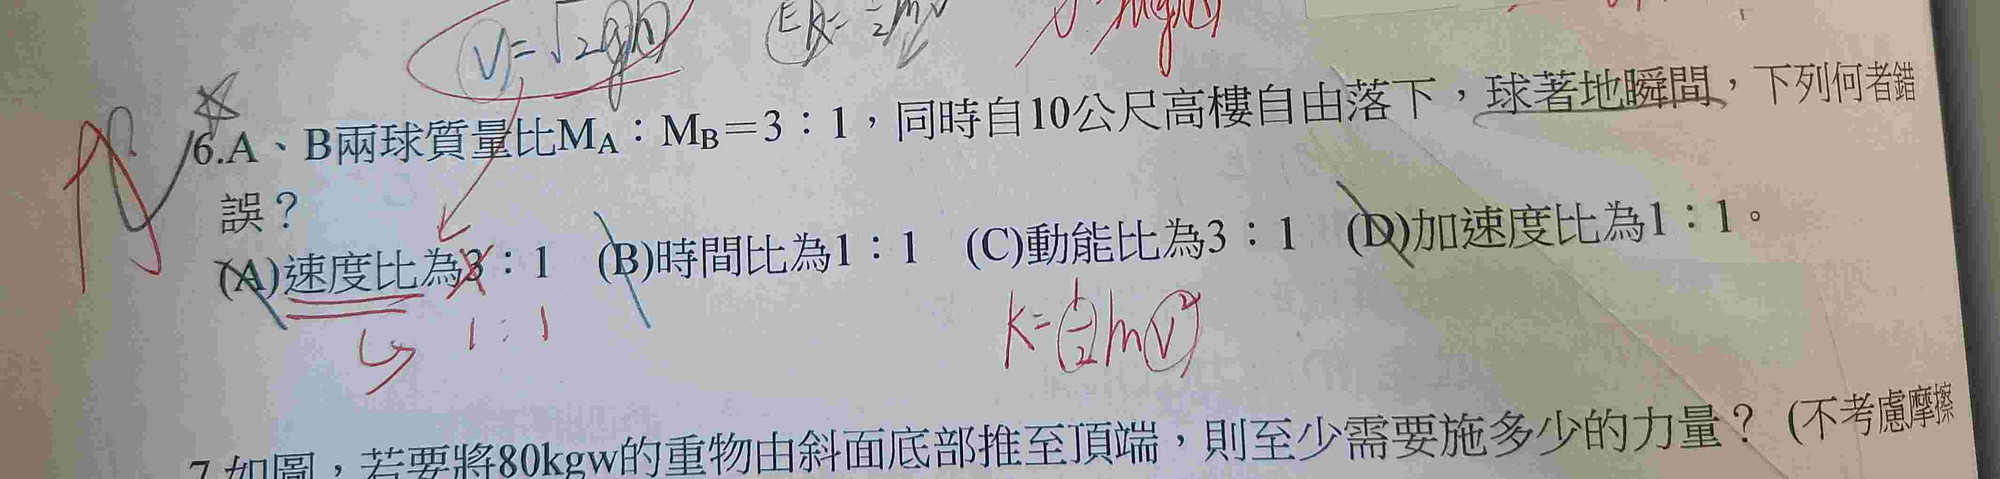 V=√2gh EK=½mv
6.A、B兩球質量比MA：MB＝3：1，同時自10公尺高樓自由落下，球著地瞬間，下列何者錯
誤？
(A)速度比為3：1 (B)時間比為1：1 (C)動能比為3：1 (D)加速度比為1：1。
1：1
K=½mv²
7.如圖，若要將80kgw的重物由斜面底部推至頂端，則至少需要施多少的力量？(不考慮摩擦